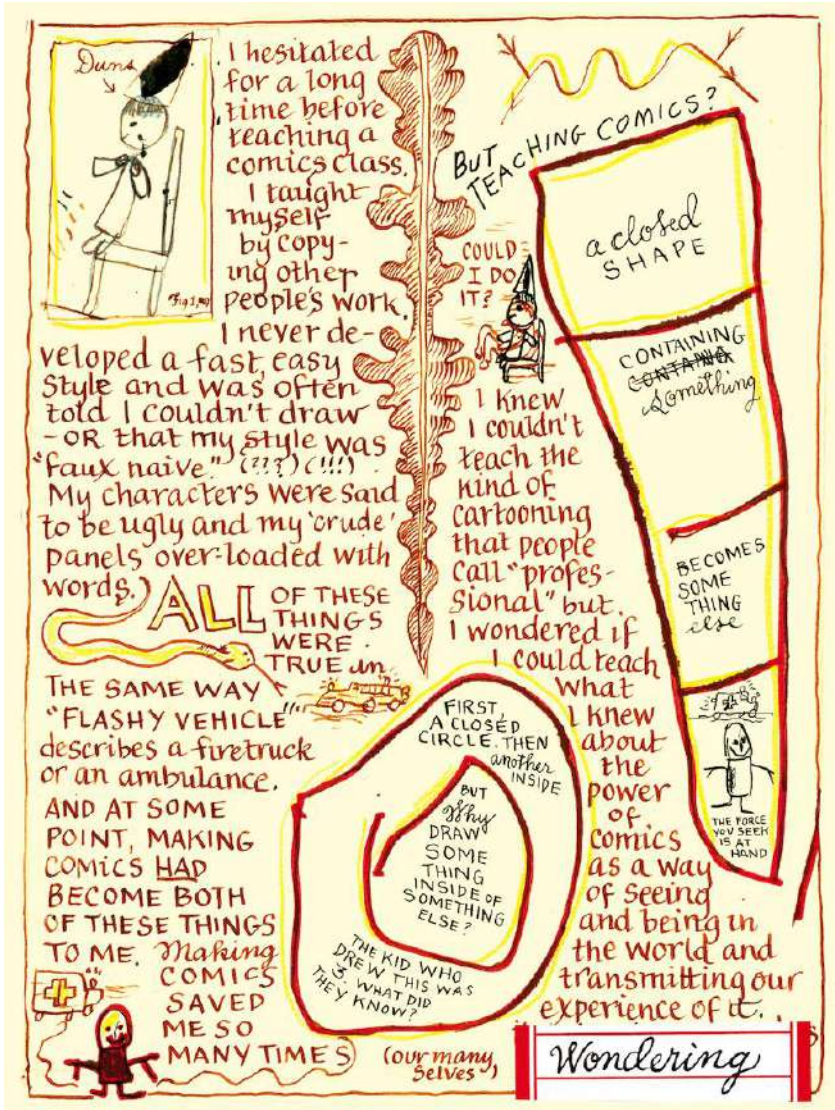 Duns
Fig 1, 
I hesitated
for a long
time before
teaching a
comics class.
I taught
myself
by copy-
ing other
people's work.
I never de-
veloped a fast, easy
style and was often
told I couldn't draw
-OR that my style was
"faux naive." (???) (!!!)
My characters were said
to be ugly and my 'crude'
panels over-loaded with
words.
ALL OF THESE
THINGS
WERE
TRUE in
THE SAME WAY
"FLASHY VEHICLE"
describes a firetruck
or an ambulance.
AND AT SOME
POINT, MAKING
COMICS HAD
BECOME BOTH
OF THESE THINGS
TO ME. Making
COMICS
SAVED
ME SO
MANY TIMES
(our many
selves)
BUT
TEACHING COMICS?
COULD
I DO
IT?
I knew
I couldn't
teach the
kind of
cartooning
that people
call "profes-
sional" but.
I wondered if
I could teach
what
I knew
about
the
power
of
comics
as a way
of seeing
and being in
the world and
transmitting our
experience of it. . .
a closed
SHAPE
CONTAINING
CONTAING
Something
BECOMES
SOME
THING
else
THE FORCE
YOU SEEK
IS AT
HAND
FIRST,
A CLOSED
CIRCLE. THEN
another
INSIDE
BUT
Why
DRAW
SOME
THING
INSIDE OF
SOMETHING
ELSE?
THE KID WHO
DREW THIS WAS
3. WHAT DID
THEY KNOW?
Wondering